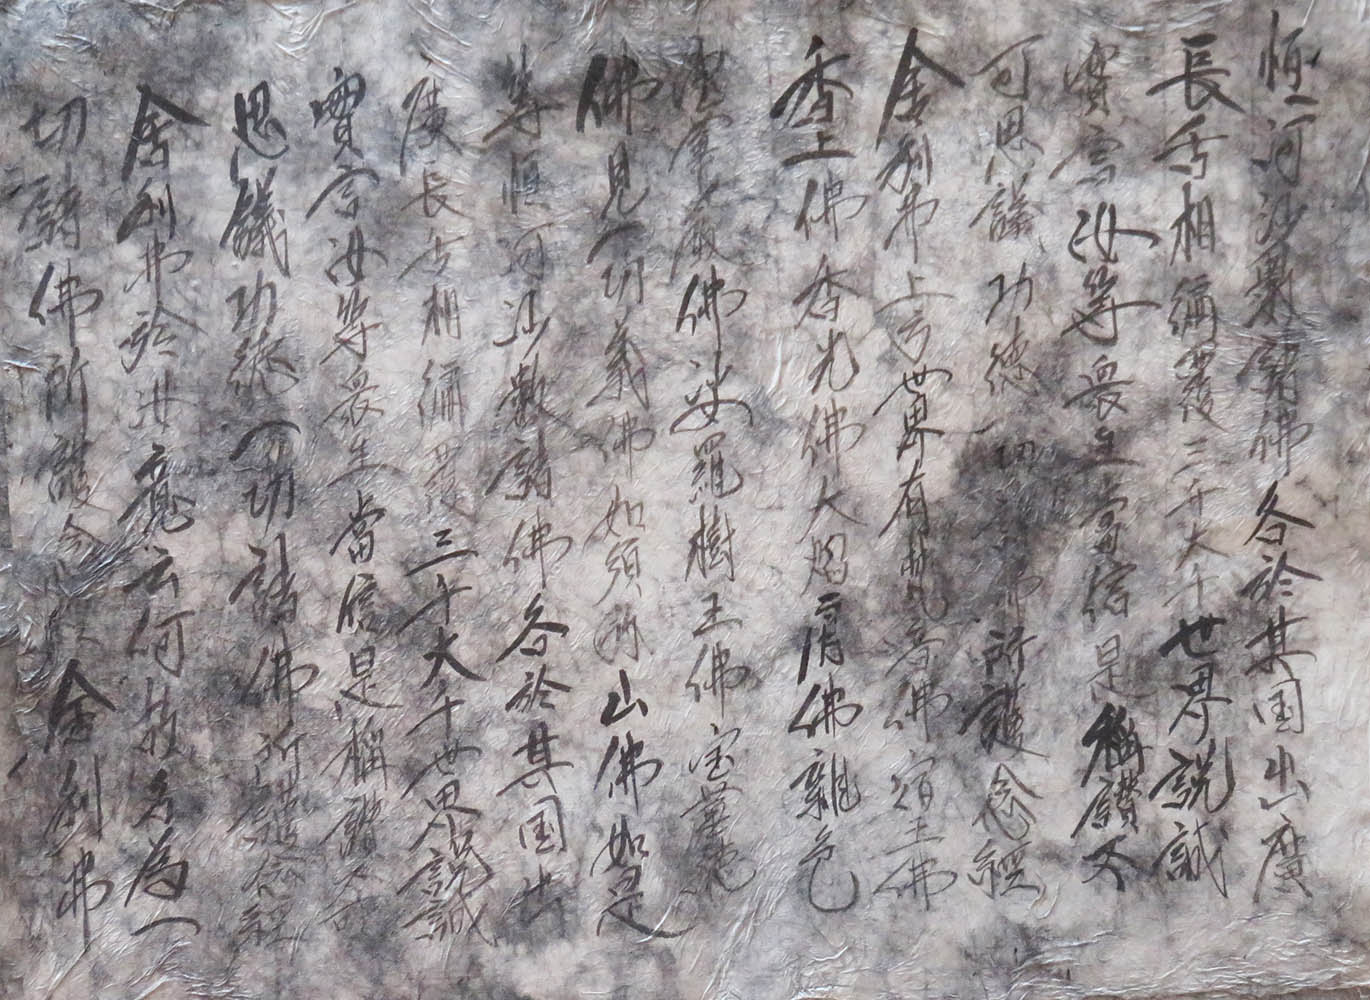 恒河沙數諸佛各於其国出廣
長舌相徧覆三千大千世界説誠
實言汝等衆生當信是稱讃不
可思議功徳一切諸佛所護念經
舎利弗上方世界有梵音佛宿王佛
香上佛香光佛大焰肩佛雜色
寶華嚴佛娑羅樹王佛宝華徳
佛見一切義佛如須弥山佛如是
等恒河沙數諸佛各於其国出
廣長舌相徧覆三千大千世界説誠
實言汝等衆生當信是稱讃不可
思議功徳一切諸佛所護念経
舎利弗於汝意云何故名為一
切諸佛所護念経舎利弗